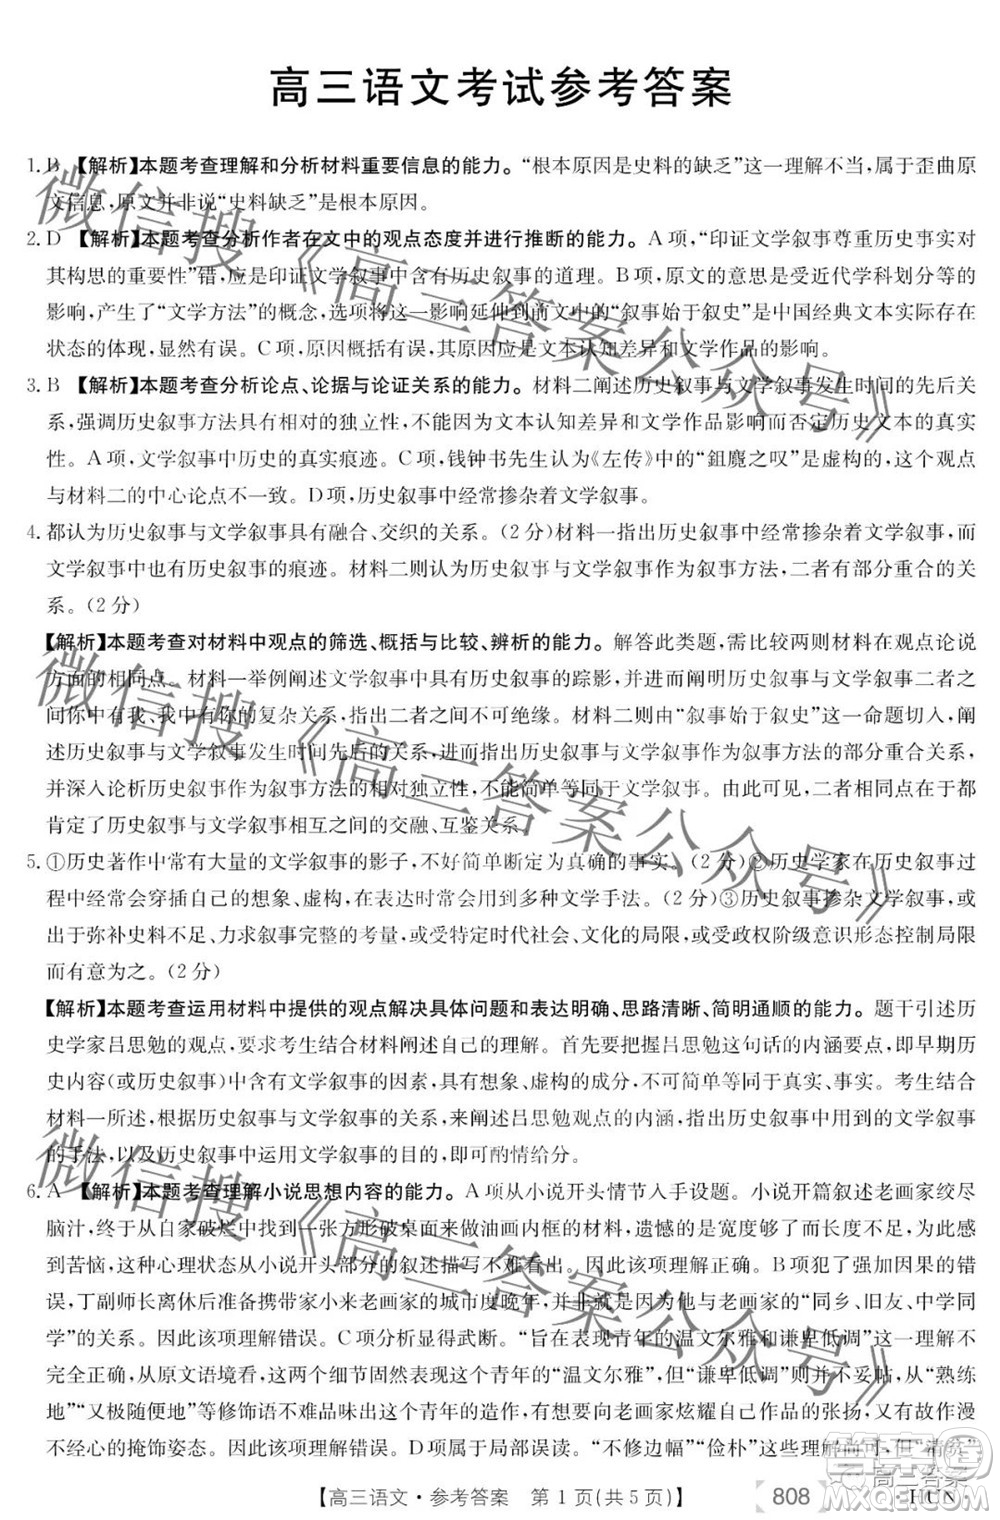 高三语文考试参考答案
1. B 【解析】本题考查理解和分析材料重要信息的能力。“根本原因是史料的缺乏”这一理解不当,属于歪曲原
文信息,原文并非说“史料缺乏”是根本原因。
2. D 【解析】本题考查分析作者在文中的观点态度并进行推断的能力。A项,“印证文学叙事尊重历史事实对
其构思的重要性”错,应是印证文学叙事中含有历史叙事的道理。B项,原文的意思是受近代学科划分等的
影响,产生了“文学方法”的概念,选项将这一影响延伸到前文中的“叙事始于叙史”是中国经典文本实际存在
状态的体现,显然有误。C项,原因概括有误,不是因为文本认知差异和文学作品的影响。
3. B 【解析】本题考查分析论点、论据与论证关系的能力。材料二阐述历史叙事与文学叙事发生时间的先后关
系,强调历史叙事方法具有相对的独立性,不能因为文本认知差异和文学作品影响而否定历史文本的真实
性。A项,文学叙事中历史的真实痕迹。C项,钱钟书先生认为《左传》中的“鉏麑之叹”是虚构的,这个观点
与材料二的中心论点不一致。D项,历史叙事中经常掺杂着文学叙事。
4. 都认为历史叙事与文学叙事具有融合、交织的关系。(2分)材料一指出历史叙事中经常掺杂着文学叙事,而
文学叙事中也有历史叙事的痕迹。材料二则认为历史叙事与文学叙事作为叙事方法,二者有部分重合的关
系。(2分)
【解析】本题考查对材料中观点的筛选、概括与比较、辨析的能力。解答此类题,需比较两则材料在观点论说
方面的相同点。材料一举例阐述文学叙事中具有历史叙事的踪影,进而阐明历史叙事与文学叙事二者之
间你中有我、我中有你的复杂关系,指出二者之间不可绝缘。材料二则由“叙事始于叙史”这一命题切入,阐
述历史叙事与文学叙事发生时间先后的关系,进而指出历史叙事与文学叙事作为叙事方法的部分重合关系,
并深入论析历史叙事作为叙事方法的相对独立性,不能简单等同于文学叙事。由此可见,二者相同点在于都
肯定了历史叙事与文学叙事相互之间的交融、互鉴关系。
5. ①历史著作中常有大量的文学叙事的影子,不能简单断定为真确的事实。(2分)②历史学家在历史叙事过
程中经常会穿插自己的想象、虚构,在表达时常会用到多种文学手法。(2分)③历史叙事掺杂文学叙事,或
或出于弥补史料不足、力求叙事完整的考量,或受特定时代社会、文化的局限,或受政权阶级意识形态控制局限
而有意为之。(2分)
【解析】本题考查运用材料中提供的观点解决具体问题和表达明确、思路清晰、简明通顺的能力。题干引述历
史学家吕思勉的观点,要求考生结合材料阐述自己的理解。首先要把握吕思勉这句话的内涵要点,即早期历
史文本(或历史叙事)中含有文学叙事的因素,具有想象、虚构的成分,不能简单等同于真人、事实。考生结合
材料一所述,根据历史叙事与文学叙事的关系,来阐述吕思勉观点的内涵;指出历史叙事中用到的文学叙事
的手法,以及历史叙事中运用文学叙事的目的,可酌情给分。
6. A 【解析】本题考查理解小说思想内容的能力。A项从小说开头情节入手设题。小说开篇叙述老画家绞尽
脑汁,终于从自家破烂中寻到一张方形破桌面来用做油画内框的材料,遗憾的是宽度够了而长度不足,从而感
到苦恼,这种心理状态从小说开头部分的叙述描写不难看出。因此该项理解正确。B项犯了混淆因果的错
误,丁副师长离休后准备携带家小来老画家的城市度晚年,并非就是因为与老画家的“同乡、旧友、中学同
学”的关系。因此该项理解错误。C项分析显得武断。“旨在表现青年的温文尔雅和谦卑低调”这一理解不
当,从原文语境看,作者固然表现青年的“温文尔雅”,但“谦卑低调”则并不妥帖,从“熟练
地”“又极随便地”等修饰语里不难品味出这个青年的作者想要向老画家炫耀自己木工手艺的张扬,又故作漫
不经心的掩饰姿态。因此,该项理解错误。D项属于局部误读。“不修边幅”“俭朴”这些理解尚可,但“清贫”
【高三语文·参考答案　第1页(共5页)】
808
·HUN·
微信搜《高三答案公众号》
微信搜《高三答案公众号》
微信搜《高三答案公众号》
高三答案